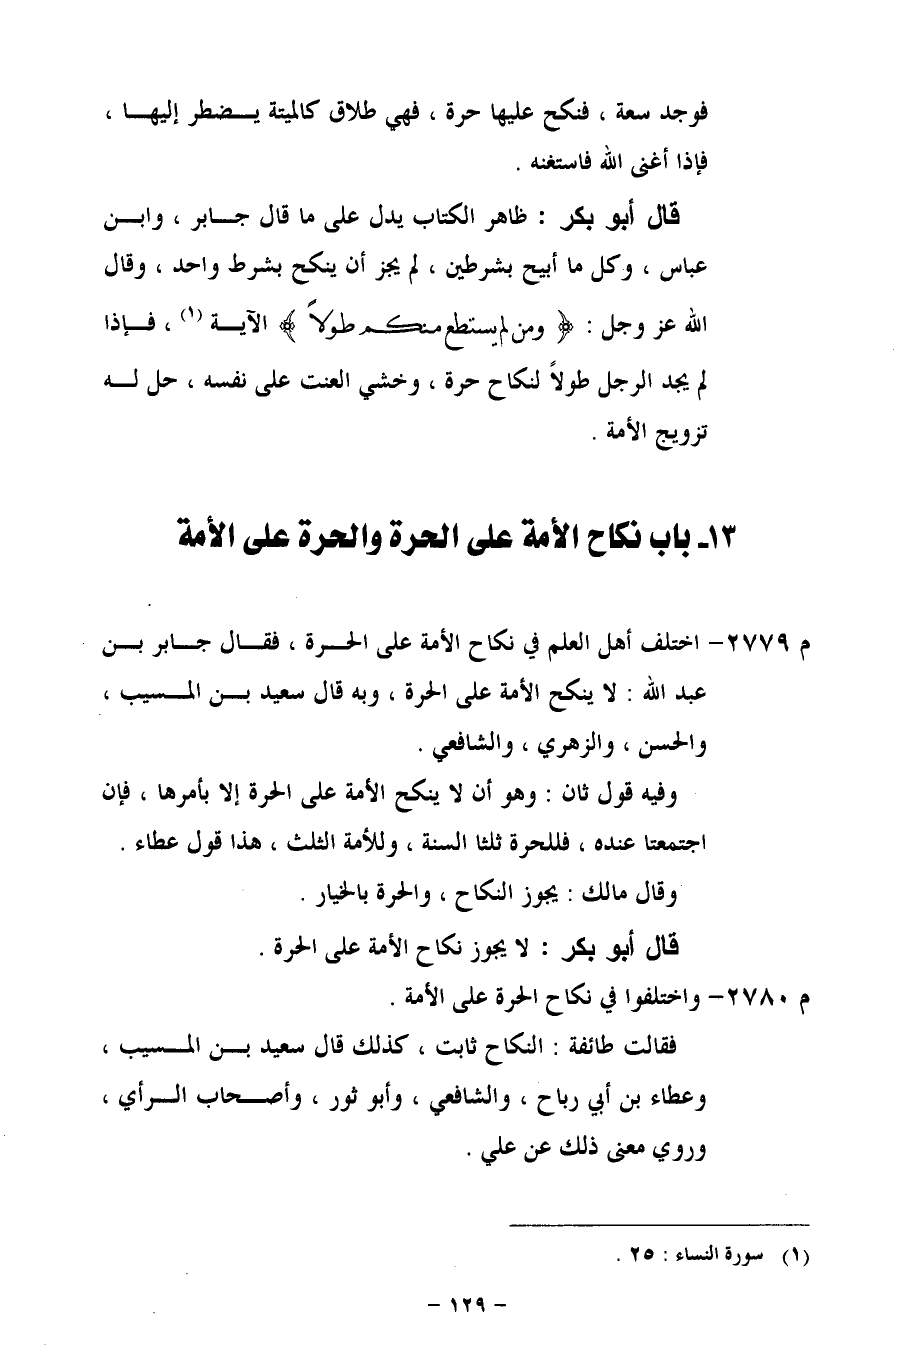 فوجد سعة ، فنكح عليها حرة ، فهي طلاق كالميتة يـضطر إليهـا ،
فإذا أغنى الله فاستغنه .
قال أبو بكر : ظاهر الكتاب يدل على ما قال جـابر ، وابـن
عباس ، وكل ما أبيح بشرطين ، لم يجز أن ينكح بشرط واحد ، وقال
الله عز وجل : ﴿ ومن لم يستطع منكم طولاً ﴾ الآيـة (١) ، فـإذا
لم يجد الرجل طولاً لنكاح حرة ، وخشي العنت على نفسه ، حل لـه
تزويج الأمة .
١٣ـ باب نكاح الأمة على الحرة والحرة على الأمة
م ٢٧٧٩– اختلف أهل العلم في نكاح الأمة على الحـرة ، فقـال جـابر بـن
عبد الله : لا ينكح الأمة على الحرة ، وبه قال سعيد بـن المـسيب ،
والحسن ، والزهري ، والشافعي .
وفيه قول ثان : وهو أن لا ينكح الأمة على الحرة إلا بأمرها ، فإن
اجتمعتا عنده ، فللحرة ثلثا السنة ، وللأمة الثلث ، هذا قول عطاء .
وقال مالك : يجوز النكاح ، والحرة بالخيار .
قال أبو بكر : لا يجوز نكاح الأمة على الحرة .
م ٢٧٨٠– واختلفوا في نكاح الحرة على الأمة .
فقالت طائفة : النكاح ثابت ، كذلك قال سعيد بـن المـسيب ،
وعطاء بن أبي رباح ، والشافعي ، وأبو ثور ، وأصـحاب الـرأي ،
وروي معنى ذلك عن علي .
(١) سورة النساء : ٢٥ .
– ١٢٩ –